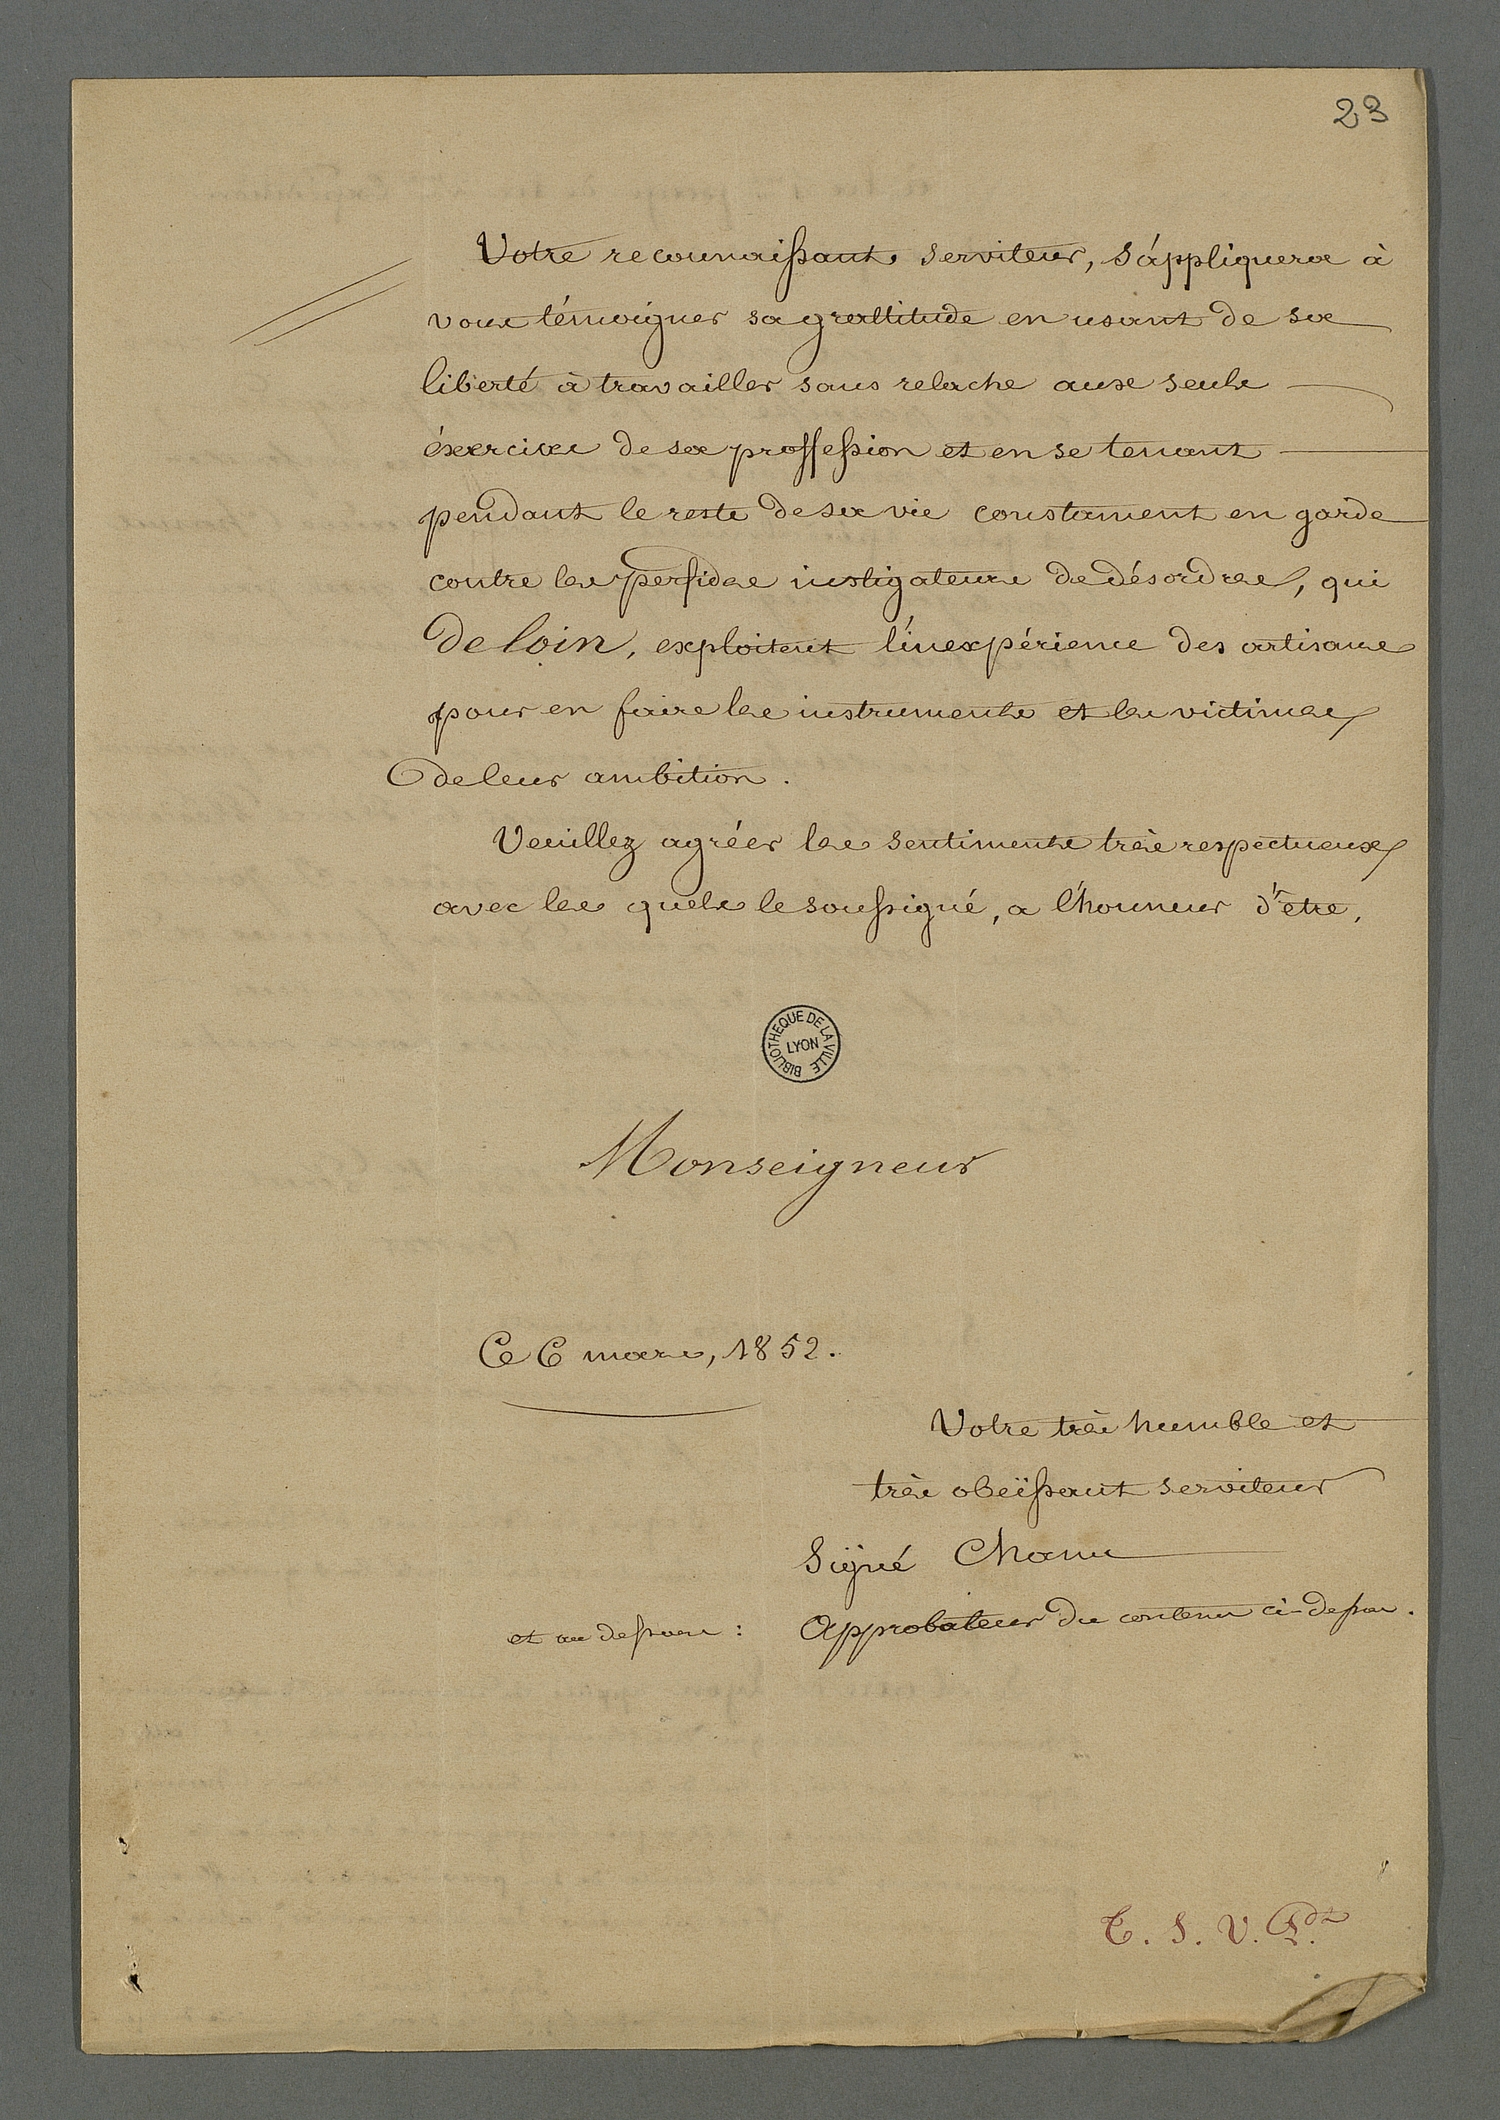 23
Votre reconnaissant serviteur, s'appliquera à
vous témoigner sa grattitude en usant de sa
liberté à travailler sans relache aux seuls
éxercixes de sa proffession et en se tenant
pendant le reste de sa vie constament en garde
contre les perfides instigateurs de désordres, qui
de loin, exploitent l'inexpérience des artisans
pour en faire les instruments et les victimes
de leur ambition.
Veuillez agréer les sentiments très respectueux
avec les quels le soussigné, a l'honneur d'être,
BIBLIOTHEQUE DE LA VILLE
LYON
Monseigneur
Ce 6 mars, 1852.
Votre très humble et
très obeïssant serviteur
Signé Chanu
et au dessous : Approbateur du contenu ci-dessus.
T. S. V. P.